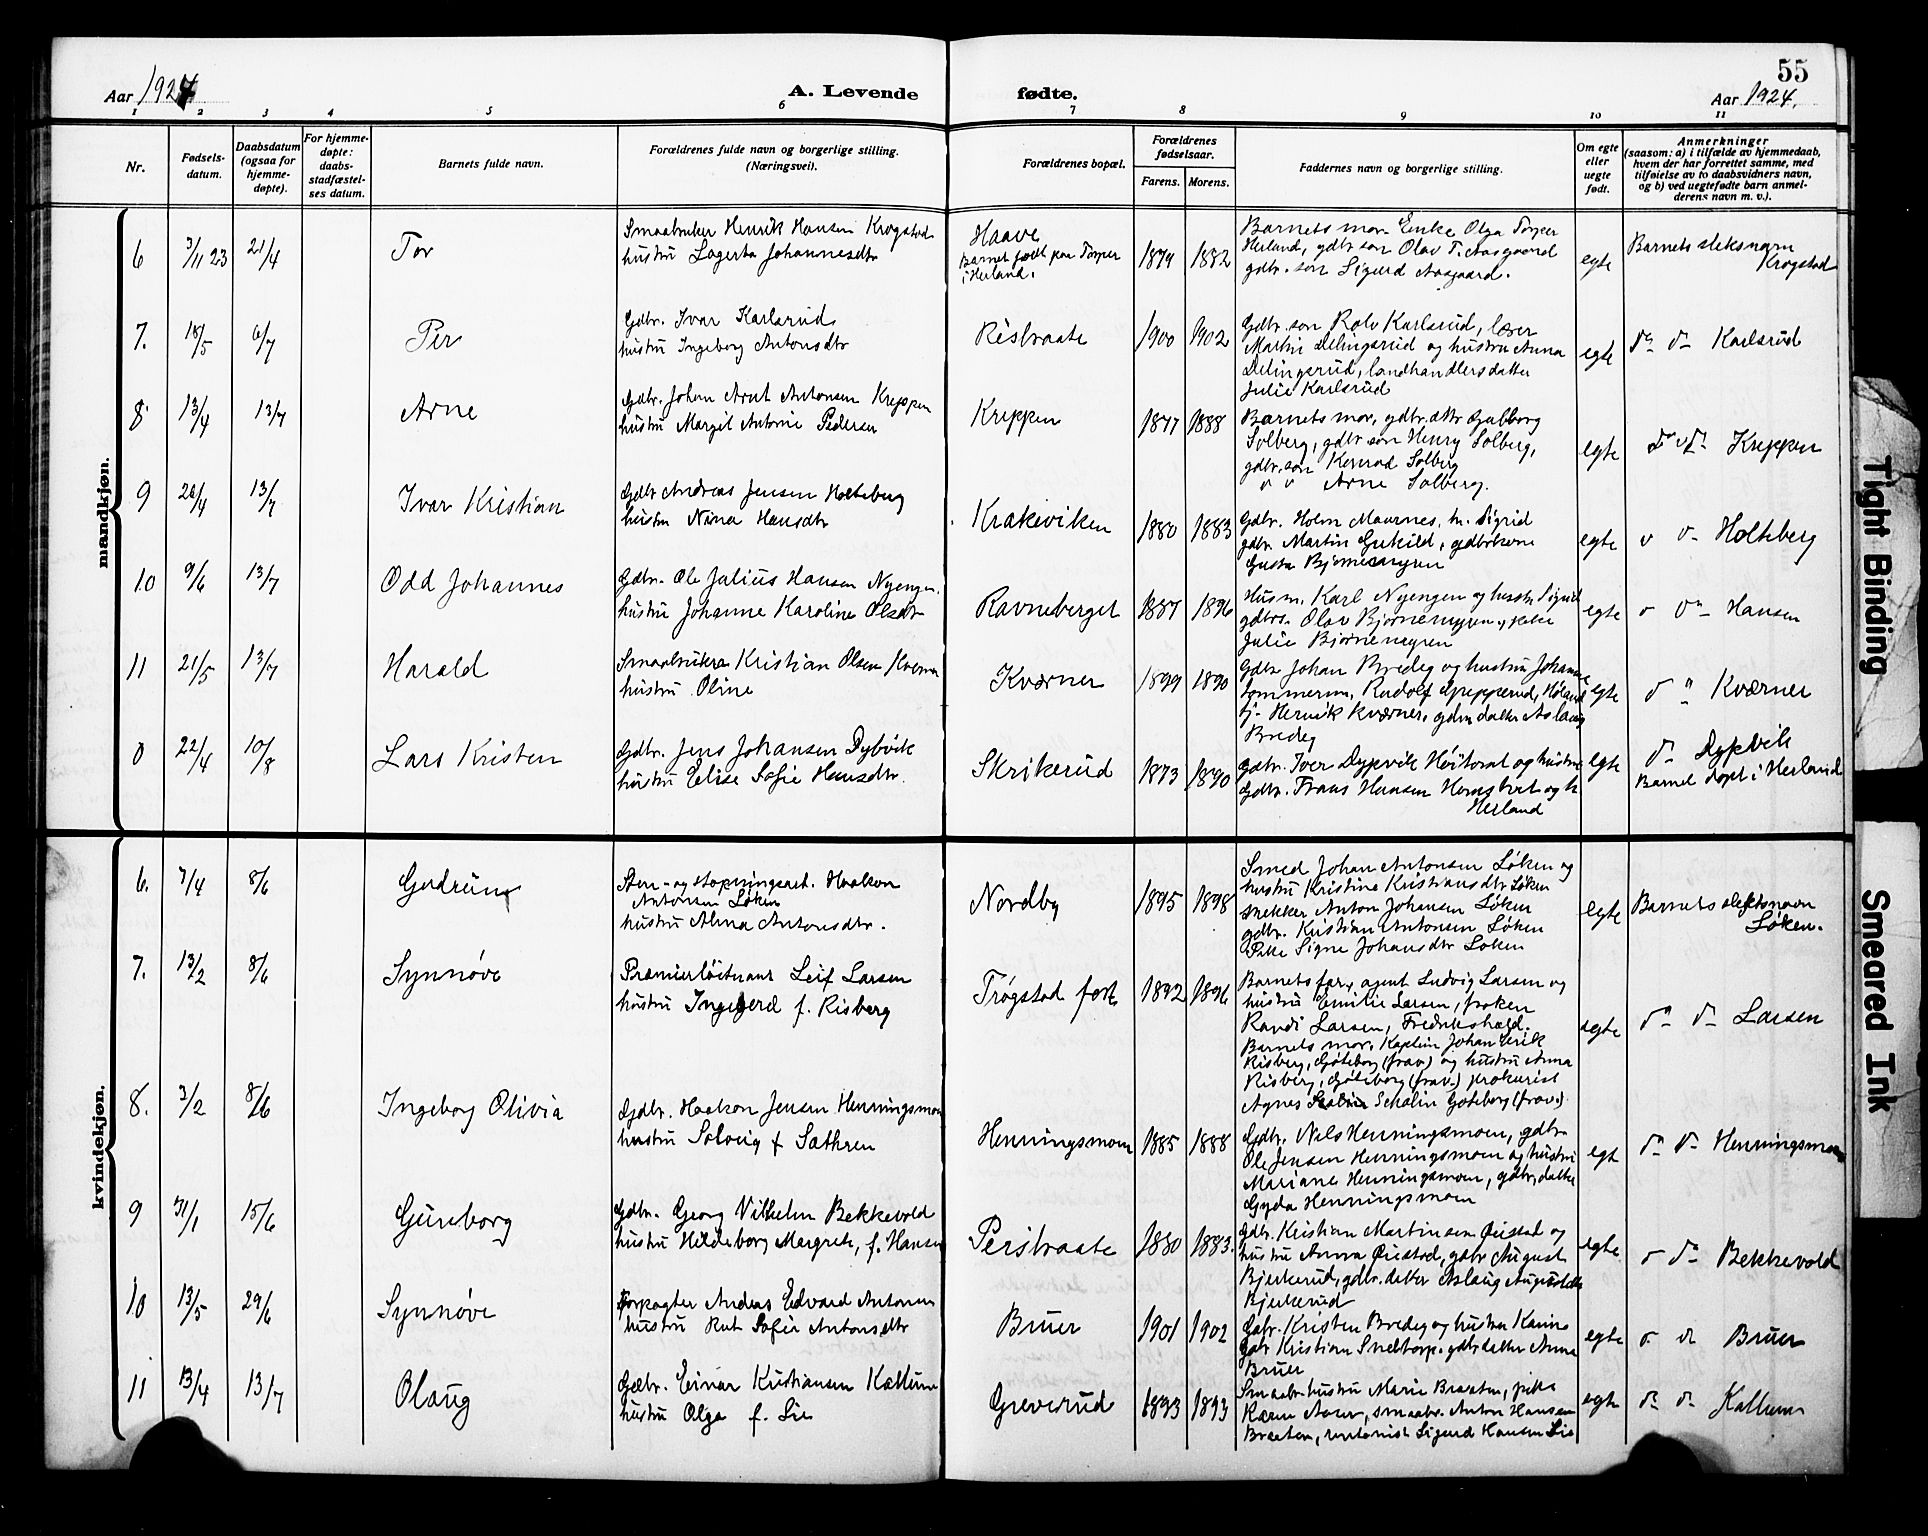 55
Aar 1924
A. Levende fødte.
Aar 1924.
1 2 3 4 5 6 7 8 9 10 11
Nr.
Fødsels-
datum.
Daabsdatum
(ogsaa for
hjemme-
døpte).
For hjemme-
døpte:
daabs-
stadfæstel-
ses datum.
Barnets fulde navn.
Forældrenes fulde navn og borgerlige stilling.
(Næringsvei).
Forældrenes bopæl.
Forældrenes
fødselsaar.
Farens. Morens.
Faddernes navn og borgerlige stilling.
Om egte
eller
uegte
født.
Anmerkninger
(saasom: a) i tilfælde av hjemmedaab,
hvem der har forrettet samme, med
tilføielse av to daabsvidners navn,
og b) ved uegtefødte barn anmel-
derens navn m. v.).
mandkjøn.
6 3/11 23 21/4 Tor
Smaabruker Henrik Hansen Krogstad
hustru Lagerta Johannesdtr
Haave
Barnet født paa Torper
i Herland.
1879 1882
Barnets mor. Enke Olga Torper
Herland, gdbr. søn Olav T. Aasgaard
gdbr. søn Sigurd Aasgaard.
egte
Barnets sleksnavn
Krogstad
7. 18/5 6/7 Per
Gdbr. Ivar Karlsrud
hustru Ingeborg Antonsdtr
Risbraate
1900 1902
Gdbr. søn Rolv Karlsrud, lærer
Martin Delingsrud og hustru Anna
Delingsrud, landhandlersdatter
Julie Karlsrud
egte
do do Karlsrud
8 13/4 13/7 Arne
Gdbr. Johan Arnt Antonsen Kreppen
hustru Margit Antonie Pedersen
Kreppen
1877 1888
Barnets mor, gdbr. dtr Gudborg
Solberg, gdbr søn Henry Solberg,
gdbr. søn Konrad Solberg
Arne Solberg.
egte
Kreppen
9 26/4 13/7 Ivar Kristian
Gdbr Andreas Jensen Holteberg
hustru Nina Hansdtr
Krakeviken
1880 1883
Gdbr. Holm Maarnes, h. Sigrid
gdbr. Martin , gdbrkone
Gusta Bjørnemyren
egte
Holteberg
10 9/6 13/7 Odd Johannes
Gdbr. Ole Julius Hansen Nyengen.
hustru Johanne Karoline Olsdtr
Ravneberget
1887 1896
Husm. Karl Nyengen og hustr. Sigrid
gdbrs. Olav Bjørnemyren, pike
Julie Bjørnemyren
egte
Hansen
11 21/5 13/7 Harald
Smaabruker Kristian Olsen Kværner
hustru Oline
Kværner
1899 1890
Gdbr Johan Bredeg og hustru Johanne
tømmerm. Rudolf , Høland
tj. Henrik Kværner, gdbr. datter Aslaug
Bredeg
egte
Kværner
0 22/4 10/8 Lars Kristen
Gdbr. Jens Johansen Dybvik
hustru Elise Sofie Hansdtr.
Skrikerud
1873 1890
Gdbr. Iver Dypvik Høitomt og hustru
Gdbr. Frans Hansen og h
Herland
egte
Dypvik
Barnet døpt i Herland
kvindekjøn.
6. 7/4 8/6 Gudrun
Sten- og støpningsarb. Haakon
Antonsen Løken
hustru Alma Antonsdtr.
Nordby
1895 1898
Smed Johan Antonsen Løken og
hustru Kristine Kristiansdtr Løken
snekker Anton Johansen Løken
gdbr. Kristian Antonsen Løken
Pike Signe Johansdtr Løken
egte
Barnets slektsnavn
Løken.
7. 13/2 8/6 Synnøve
Premierløitnant Leif Larsen
hustru Ingegerd f. Risberg
Trøgstad fort
1892 1896
Barnets far, agent Ludvig Larsen og
hustru Emilie Larsen, frøken
Randi Larsen, Fredrikshald.
Barnets mor. Kaptein Johan Erik
Risberg, Gøteborg (frav) og hustru Anna
Risberg, Gøteborg (frav.) prokurist
Agnes Schalin Gøteborg (frav.)
egte
do do Larsen
8. 3/2 8/6 Ingeborg Olivia
Gdbr. Haakon Jensen Henningsmoen
hustru Solveig f Sæthren
Henningsmoen
1885 1888
Gdbr. Nils Henningsmoen, gdbr
Ole Jensen Henningsmoen og hustru
Mariane Henningsmoen, gdbr. datter
Gyda Henningsmoen
egte
do do Henningsmoen
9 31/1 15/6 Gunborg
Gdbr. Georg Vilhelm Bekkevold
hustru Hildeborg Margrete, f. Hansen
Persbraate
1880 1883.
Gdbr. Kristian Martinsen Øiestad og
hustru Anna Øiestad, gdbr August
Bjerkerud, gdbr. datter Aslaug Augustdtr
Bjerkerud
egte
Bekkevold
10 13/5 29/6 Synnøve
Forpagter Andreas Edvard Antonsen
hustru Rut Sofie Antonsdtr
Bruer
1901 1902
Gdbr. Kristen Bredeg og hustru Karine
gdbr Kristian Sneltorp. gdbr datter Anna
Bruer
egte
Bruer
11 13/4 13/7 Olaug
Gdbr. Einar Kristiansen Kallum
hustru Olga f. Lie
Greverud
1893 1893
Smaabr. hustru Marie Braaten, pike
Karen , smaabr. Anton Hansen
Braaten, Sigurd Hansen Lie
egte
do do Kallum
Tight Binding
Smeared Ink